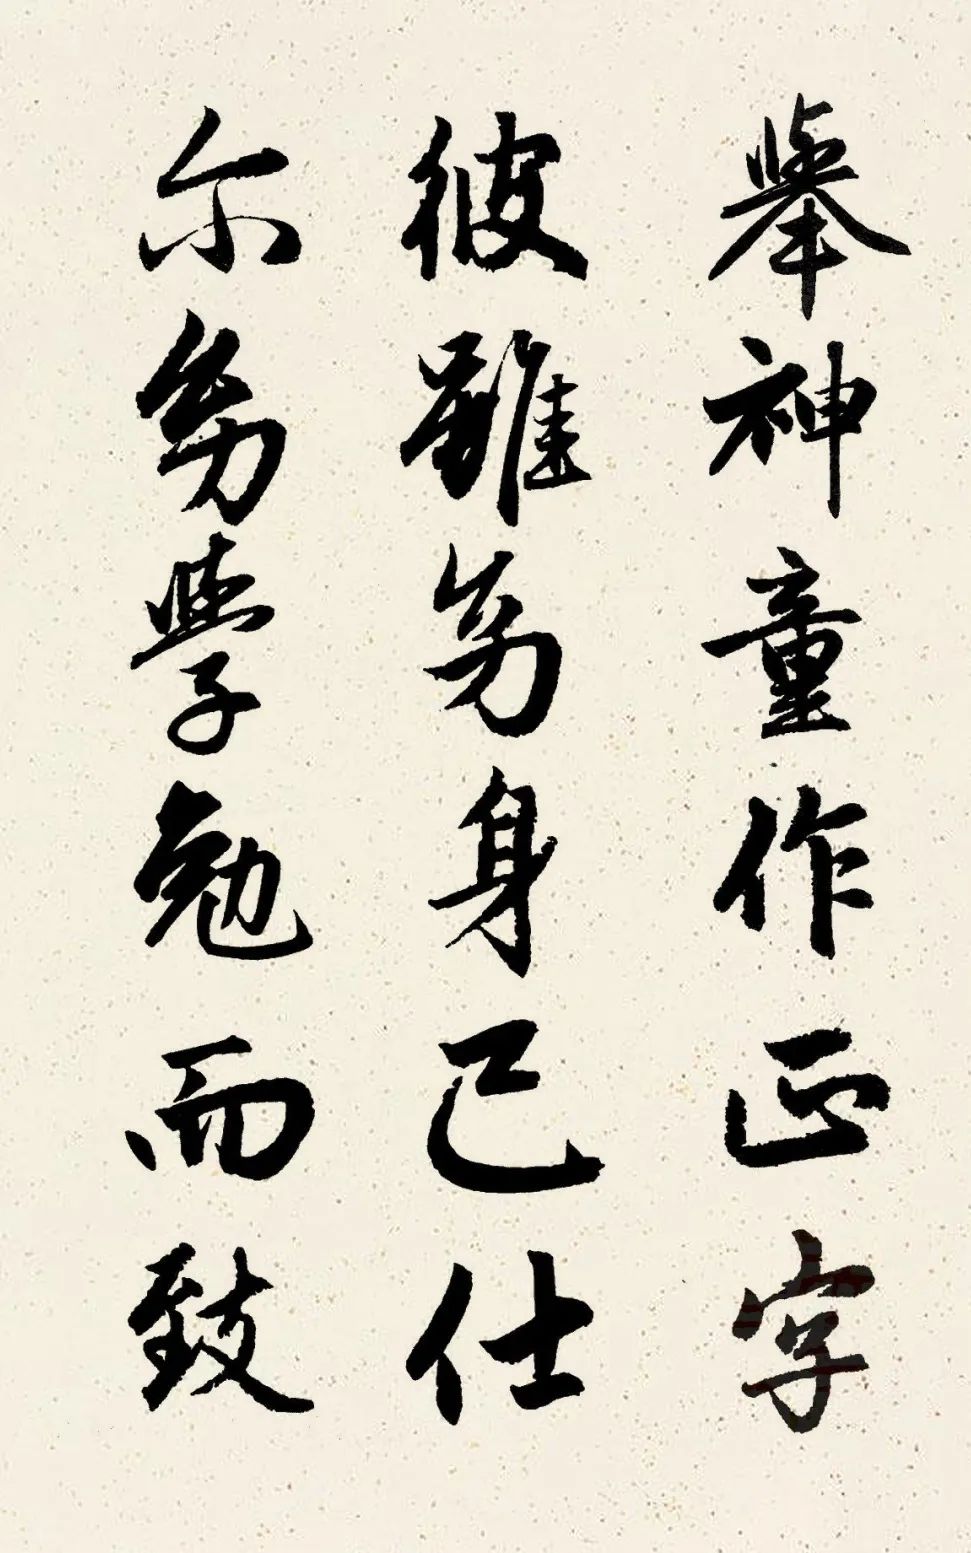 舉神童作正字
彼雖幼身已仕
尔幼學勉而致